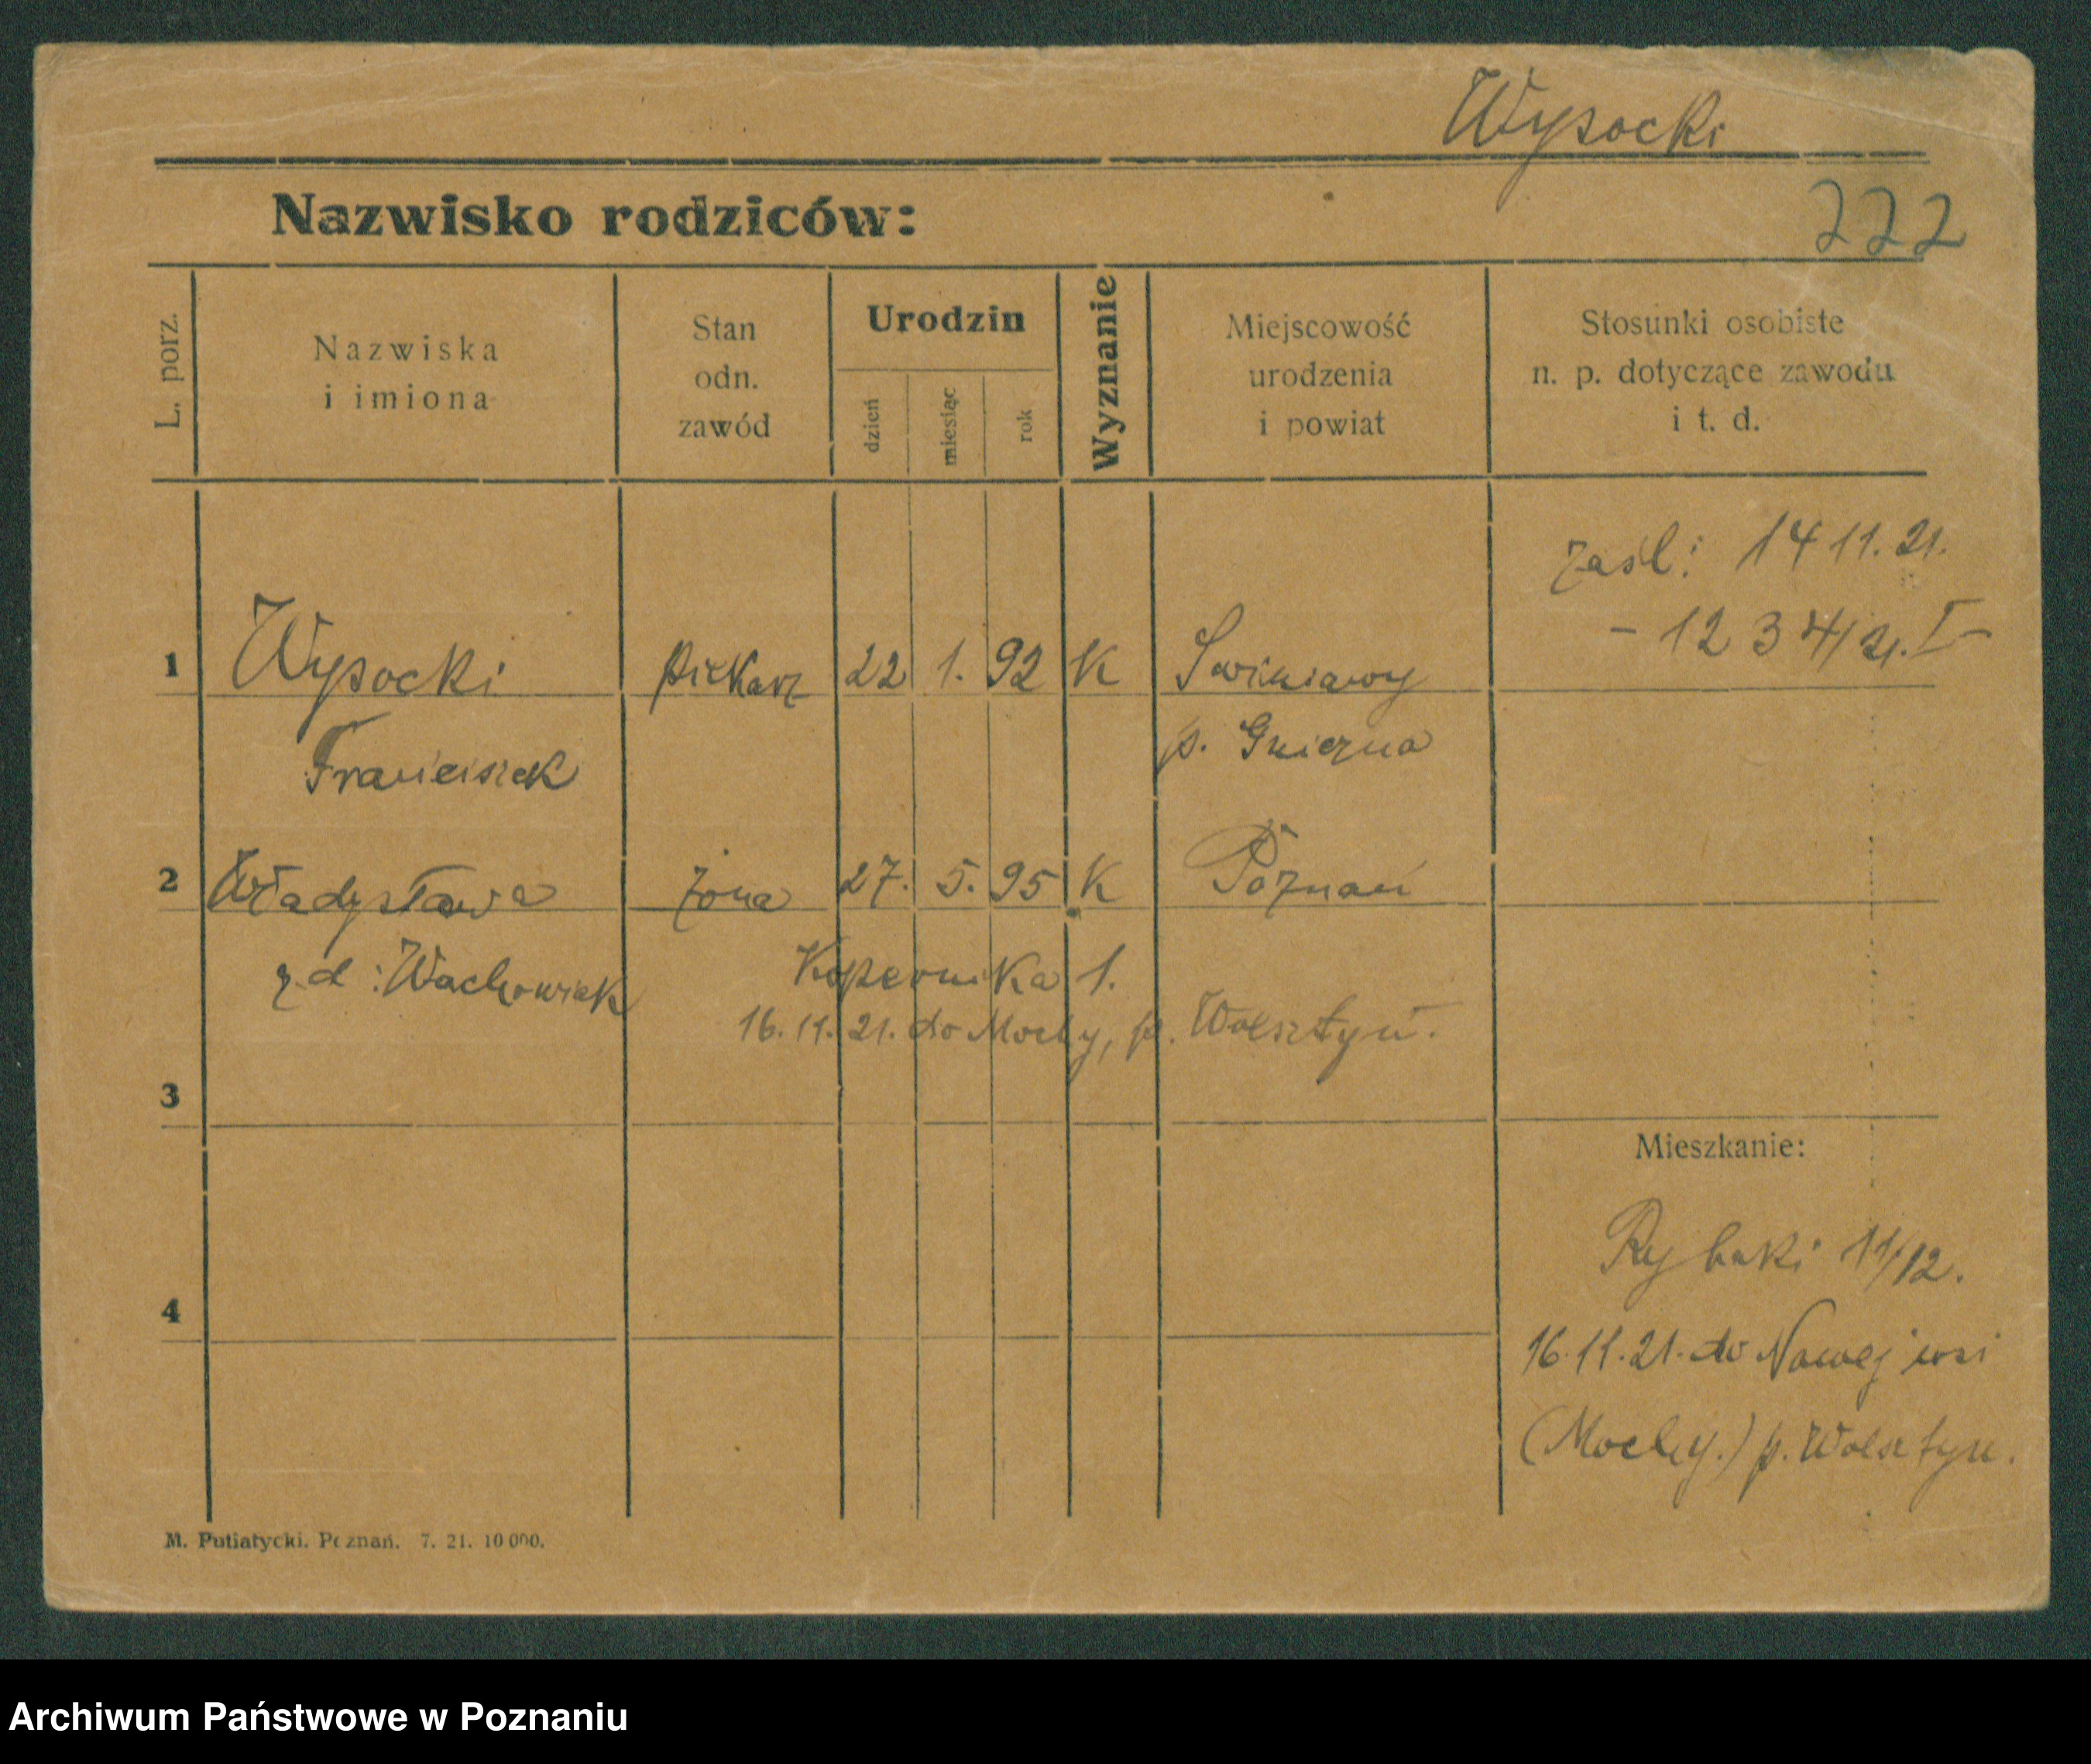 Wysocki
Nazwisko rodziców:
222
L. porz.
Nazwiska
i imiona
Stan
odn.
zawód
Urodzin
dzień
miesiąc
rok
Wyznanie
Miejscowość
urodzenia
i powiat
Stosunki osobiste
n. p. dotyczące zawodu
i t. d.
zaśl: 14 11. 21.
- 1234/21. I -
1 Wysocki piekarz 22 1. 92 K Swiniary
Franciszek p. Gniezna
2 Władysława żona 27. 5. 95 K Poznań
z d: Wachowiak Kopernika 1.
16. 11. 21. do Mochy, p. Wolsztyn.
3
Mieszkanie:
Rybaki 11/12.
4
16. 11. 21. do Nowej wsi
(Mochy.) p. Wolsztyn.
M. Putiatycki. Poznań. 7. 21. 10 000.
Archiwum Państwowe w Poznaniu